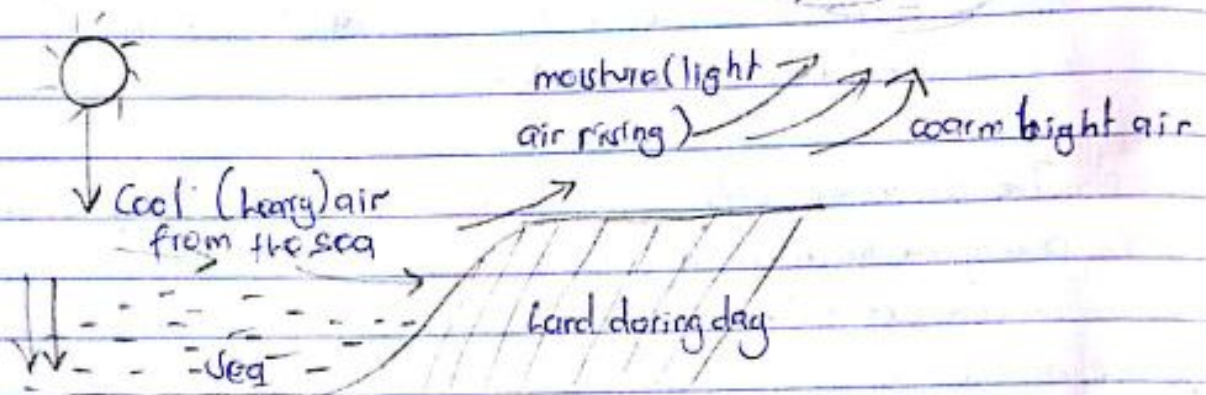 moisture (light
air rising)
warm light air
Cool (heavy) air
from the sea
Land during day
Sea